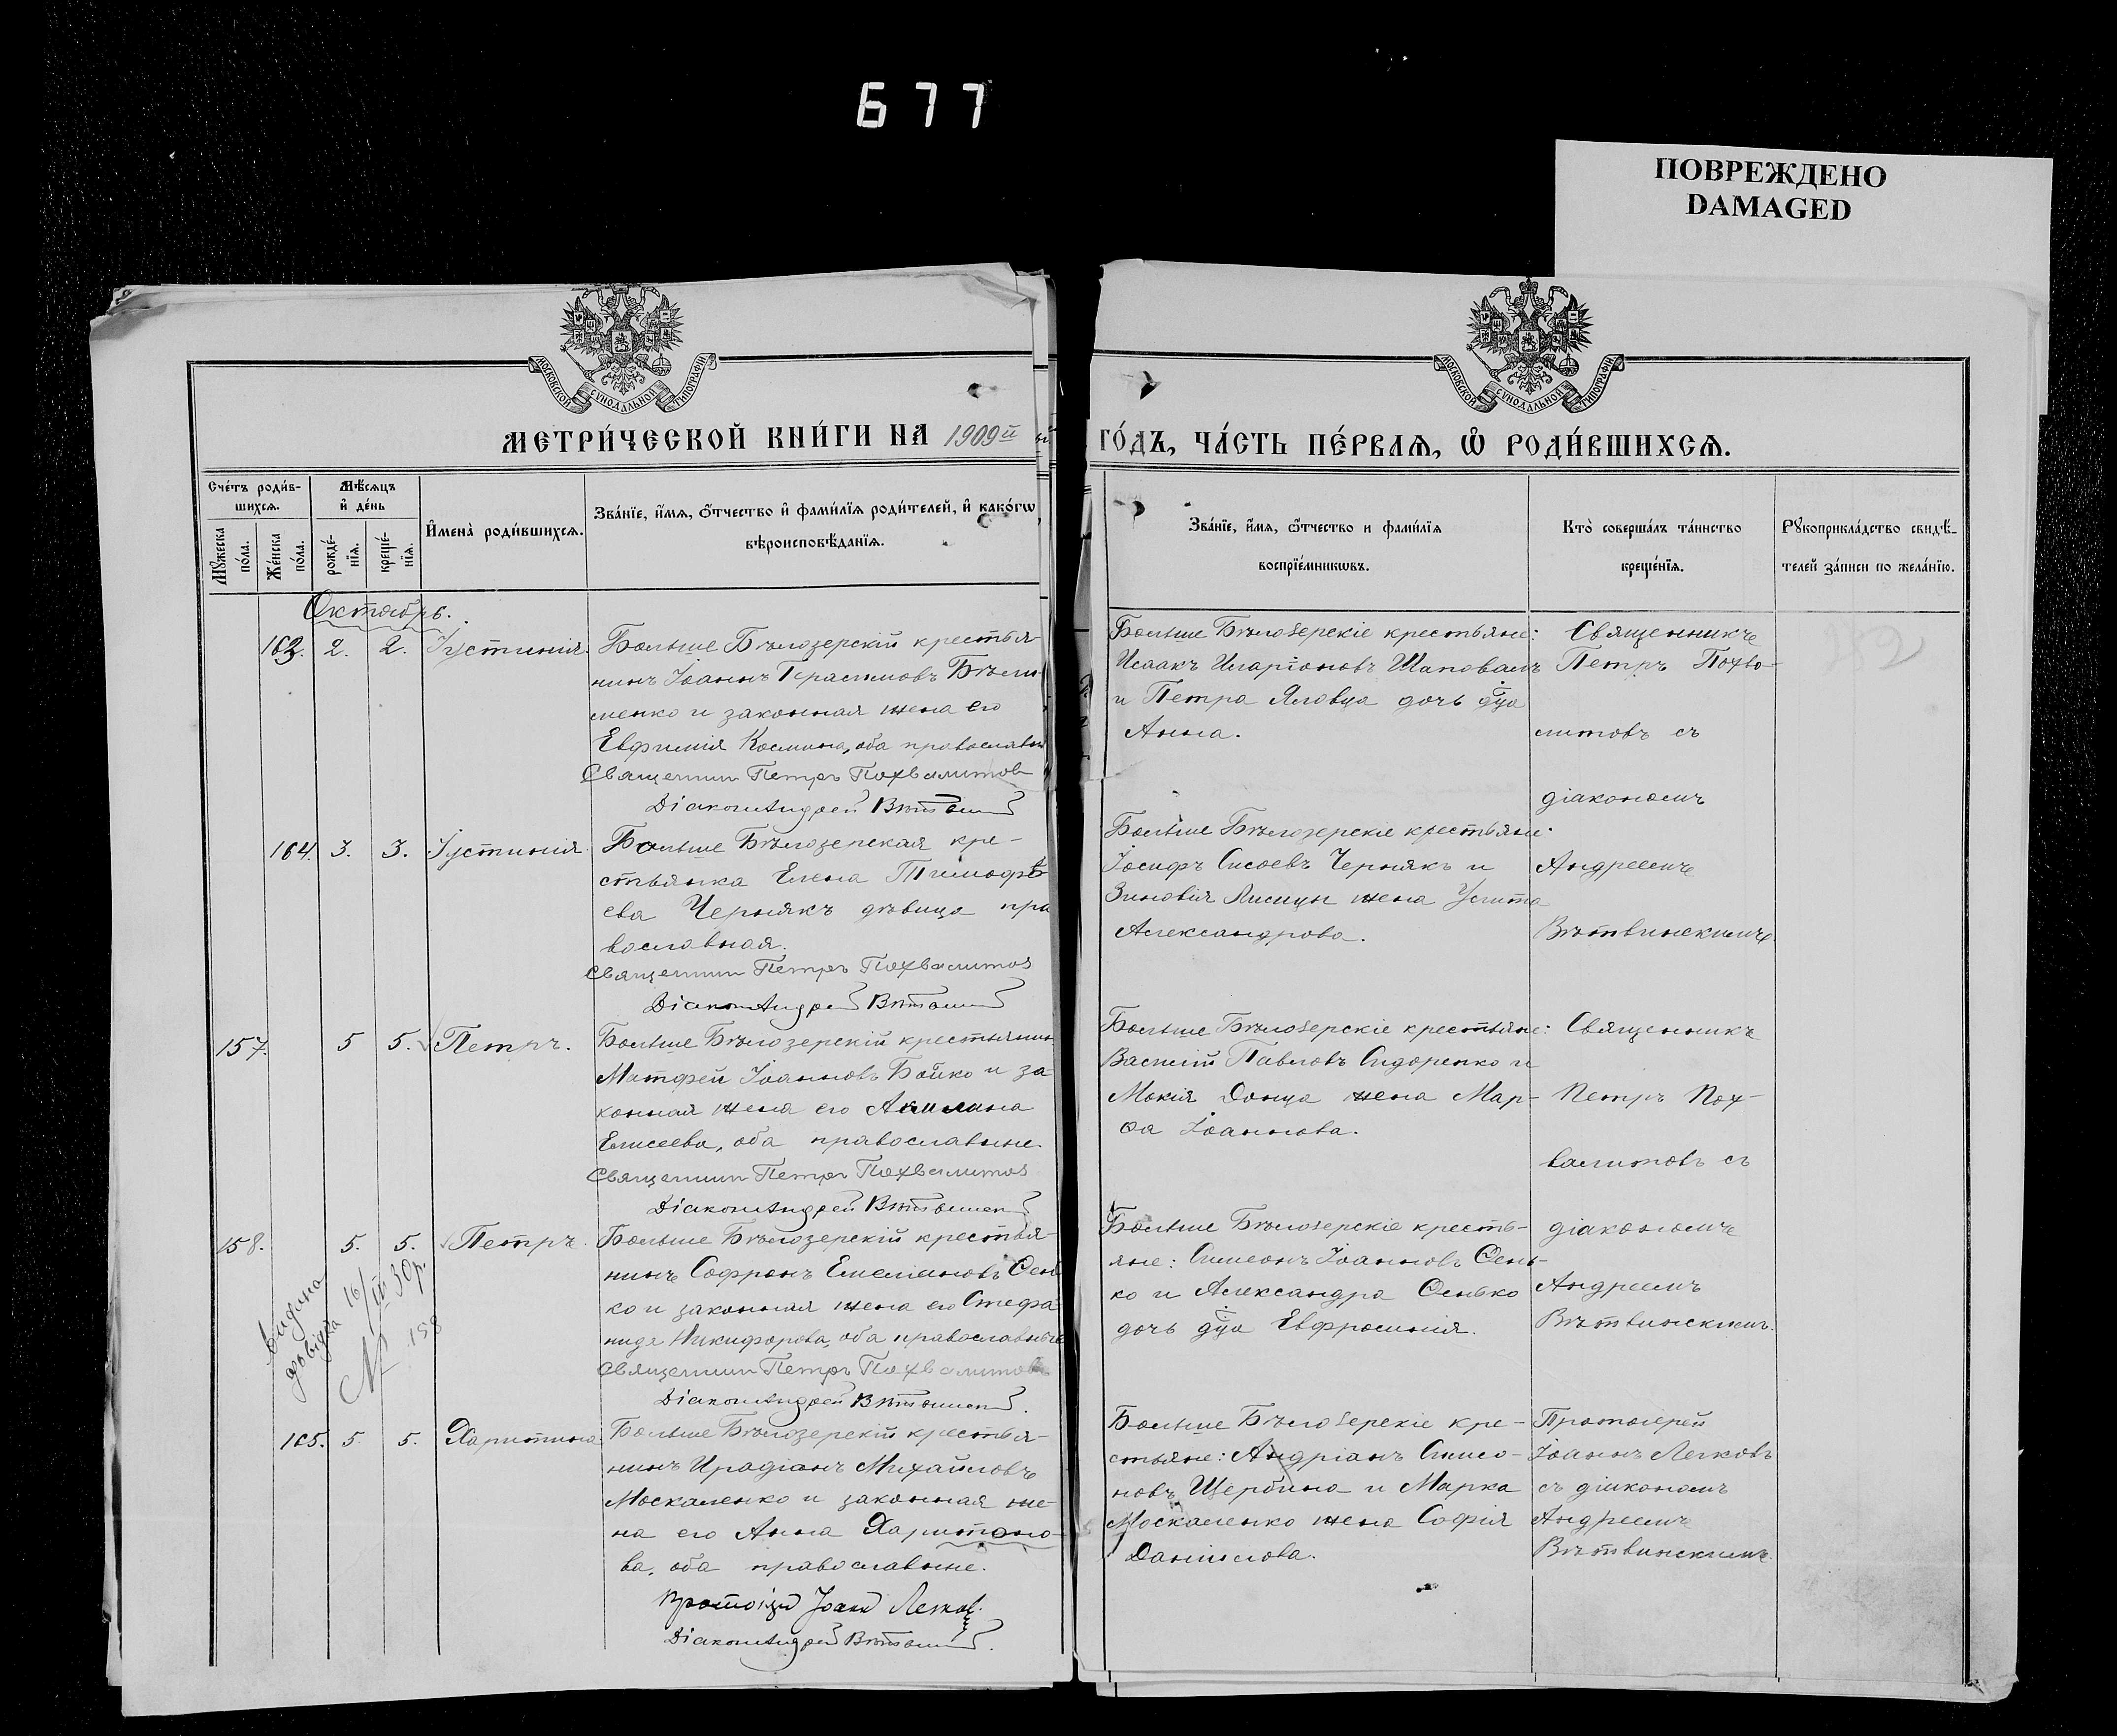 677
ПОВРЕЖДЕНО
DAMAGED
МОСКОВСКОЙ СѴНОДАЛЬНОЙ ТИПОГРАФІИ
МОСКОВСКОЙ СѴНОДАЛЬНОЙ ТИПОГРАФІИ
МЕТРИ́ЧЕСКОЙ КНИ́ГИ НА 1909й
ГО́ДЪ, ЧА́СТЬ ПЕ́РВАѦ, Ѡ РОДИ́ВШИХСѦ.
Сче́тъ роди́в-
шихсѧ.
Мꙋжеска
по́ла.
Же́нска
по́ла.
Мѣ́сѧцъ
и де́нь
рожде́-
нїѧ.
креще́-
нїѧ.
И҆мена̀ роди́вшихсѧ.
Зва́нїе, и҆́мѧ, ѻ҆́тчество и҆ фами́лїѧ роди́телей, и҆ како́гѡ
вѣроисповѣ́данїѧ.
Зва́нїе, и҆́мѧ, ѻ҆́тчество и фами́лїѧ
воспрїе́мникѡвъ.
Кто̀ соверша́лъ та́инство
креще́нїѧ.
Рꙋкоприкла́дство свидѣ́-
телей за́писи по жела́нїю.
Октябрь.
163. 2. 2. Іустинія.
Больше Бѣлозерскій крестья-
нинъ Іоаннъ Герасимовъ
менко и законная жена его
Евфимія Космина, оба православн
Священник Петръ Похвалитов
Діакон Андрей
Больше Бѣлозерскіе крестьяне:
Исаакъ Иларіоновъ Шаповалъ
и Петра Яловца дочь дѣца
Анна.
Священникъ
Петръ Похва-
литовъ съ
діакономъ
164. 3. 3. Іустинія
Больше Бѣлозерская кре-
стьянка Елена Тимофѣ
ева Чернякъ дѣвица пра
вославная.
Священник Петръ Похвалитов
Діакон Андрей
Больше Бѣлозерскіе крестьяне.
Іосифъ Сисоевъ Чернякъ и
Зиновія Лисицы жена Улита
Александрова.
Андреемъ
Вѣтвинскимъ.
157. 5 5. Петръ.
Больше Бѣлозерскій крестьянин
Матфей Іоанновъ Бойко и за
конная жена его Акилина
Елисеева, оба православные.
Священник Петръ Похвалитов
Діакон Андрей
Больше Бѣлозерскіе крестьяне:
Василій Павловъ Сидоренко и
Мокія Донца жена Мар-
ѳа Іоаннова.
Священникъ
Петръ Пох-
валитовъ съ
158. 5. 5. Петръ
Больше Бѣлозерскій крестья-
нинъ Софронъ Емеліановъ Сень
ко и законная жена его Стефа
нида Никифорова, оба православные
Священник Петръ Похвалитовъ
Діакон Андрей
Больше Бѣлозерскіе кресть-
яне: Симеонъ Іоанновъ Сень-
ко и Александра Сенько
дочь дѣца Евфросинія.
діакономъ
Андреемъ
Вѣтвинскимъ.
Видана
довідка 16/IV 30 р.
№ 158
165. 5. 5. Харитина
Больше Бѣлозерскій крестья-
нинъ Иродіанъ Михайловъ
Москаленко и законная же-
на его Анна Харитоно-
ва, оба православные.
Протоіер Іоанн Легков
Діакон Андрей
Больше Бѣлозерскіе кре-
стьяне: Андріанъ Симо-
новъ Щербина и Марка
Москаленко жена Софія
Даніилова.
Протоіерей
Іоаннъ Легковъ
съ діакономъ
Андреемъ
Вѣтвинскимъ.